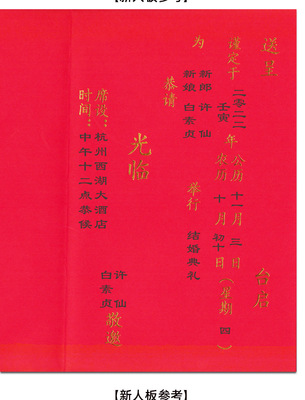 【新人板参考】
送呈 台启
谨定于 二零二二 年 公历 十一月 三 日（星期 四）
壬寅 农历 十 月 初十 日
为 新郎 许仙 举行 结婚典礼
新娘 白素贞
恭请
光临
席设：杭州西湖大酒店
时间：中午十二点恭候
许仙
白素贞 敬邀
【新人板参考】